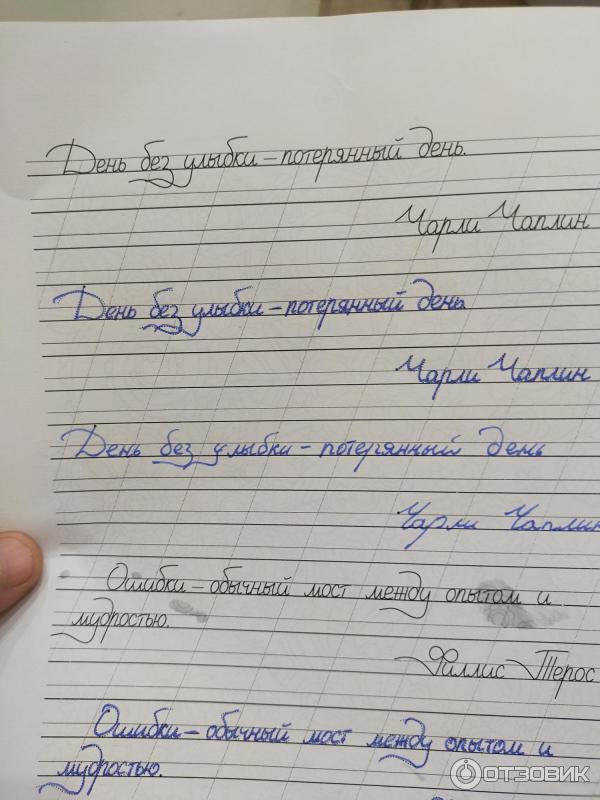 День без улыбки – потерянный день.
Чарли Чаплин
День без улыбки – потерянный день.
Чарли Чаплин
День без улыбки – потерянный день
Чарли Чаплин
Ошибки – обычный мост между опытом и
мудростью.
Филлис Терос
Ошибки – обычный мост между опытом и
мудростью.
ОТЗОВИК